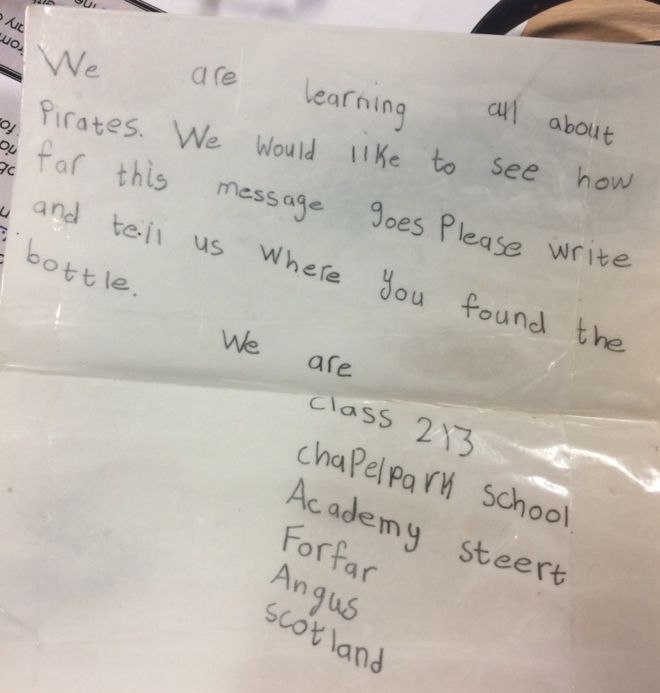 We are learning all about
Pirates. We would like to see how
far this message goes Please write
and tell us where you found the
bottle.
We are
class 2/3
chapelpark school
Academy steert
Forfar
Angus
scotland